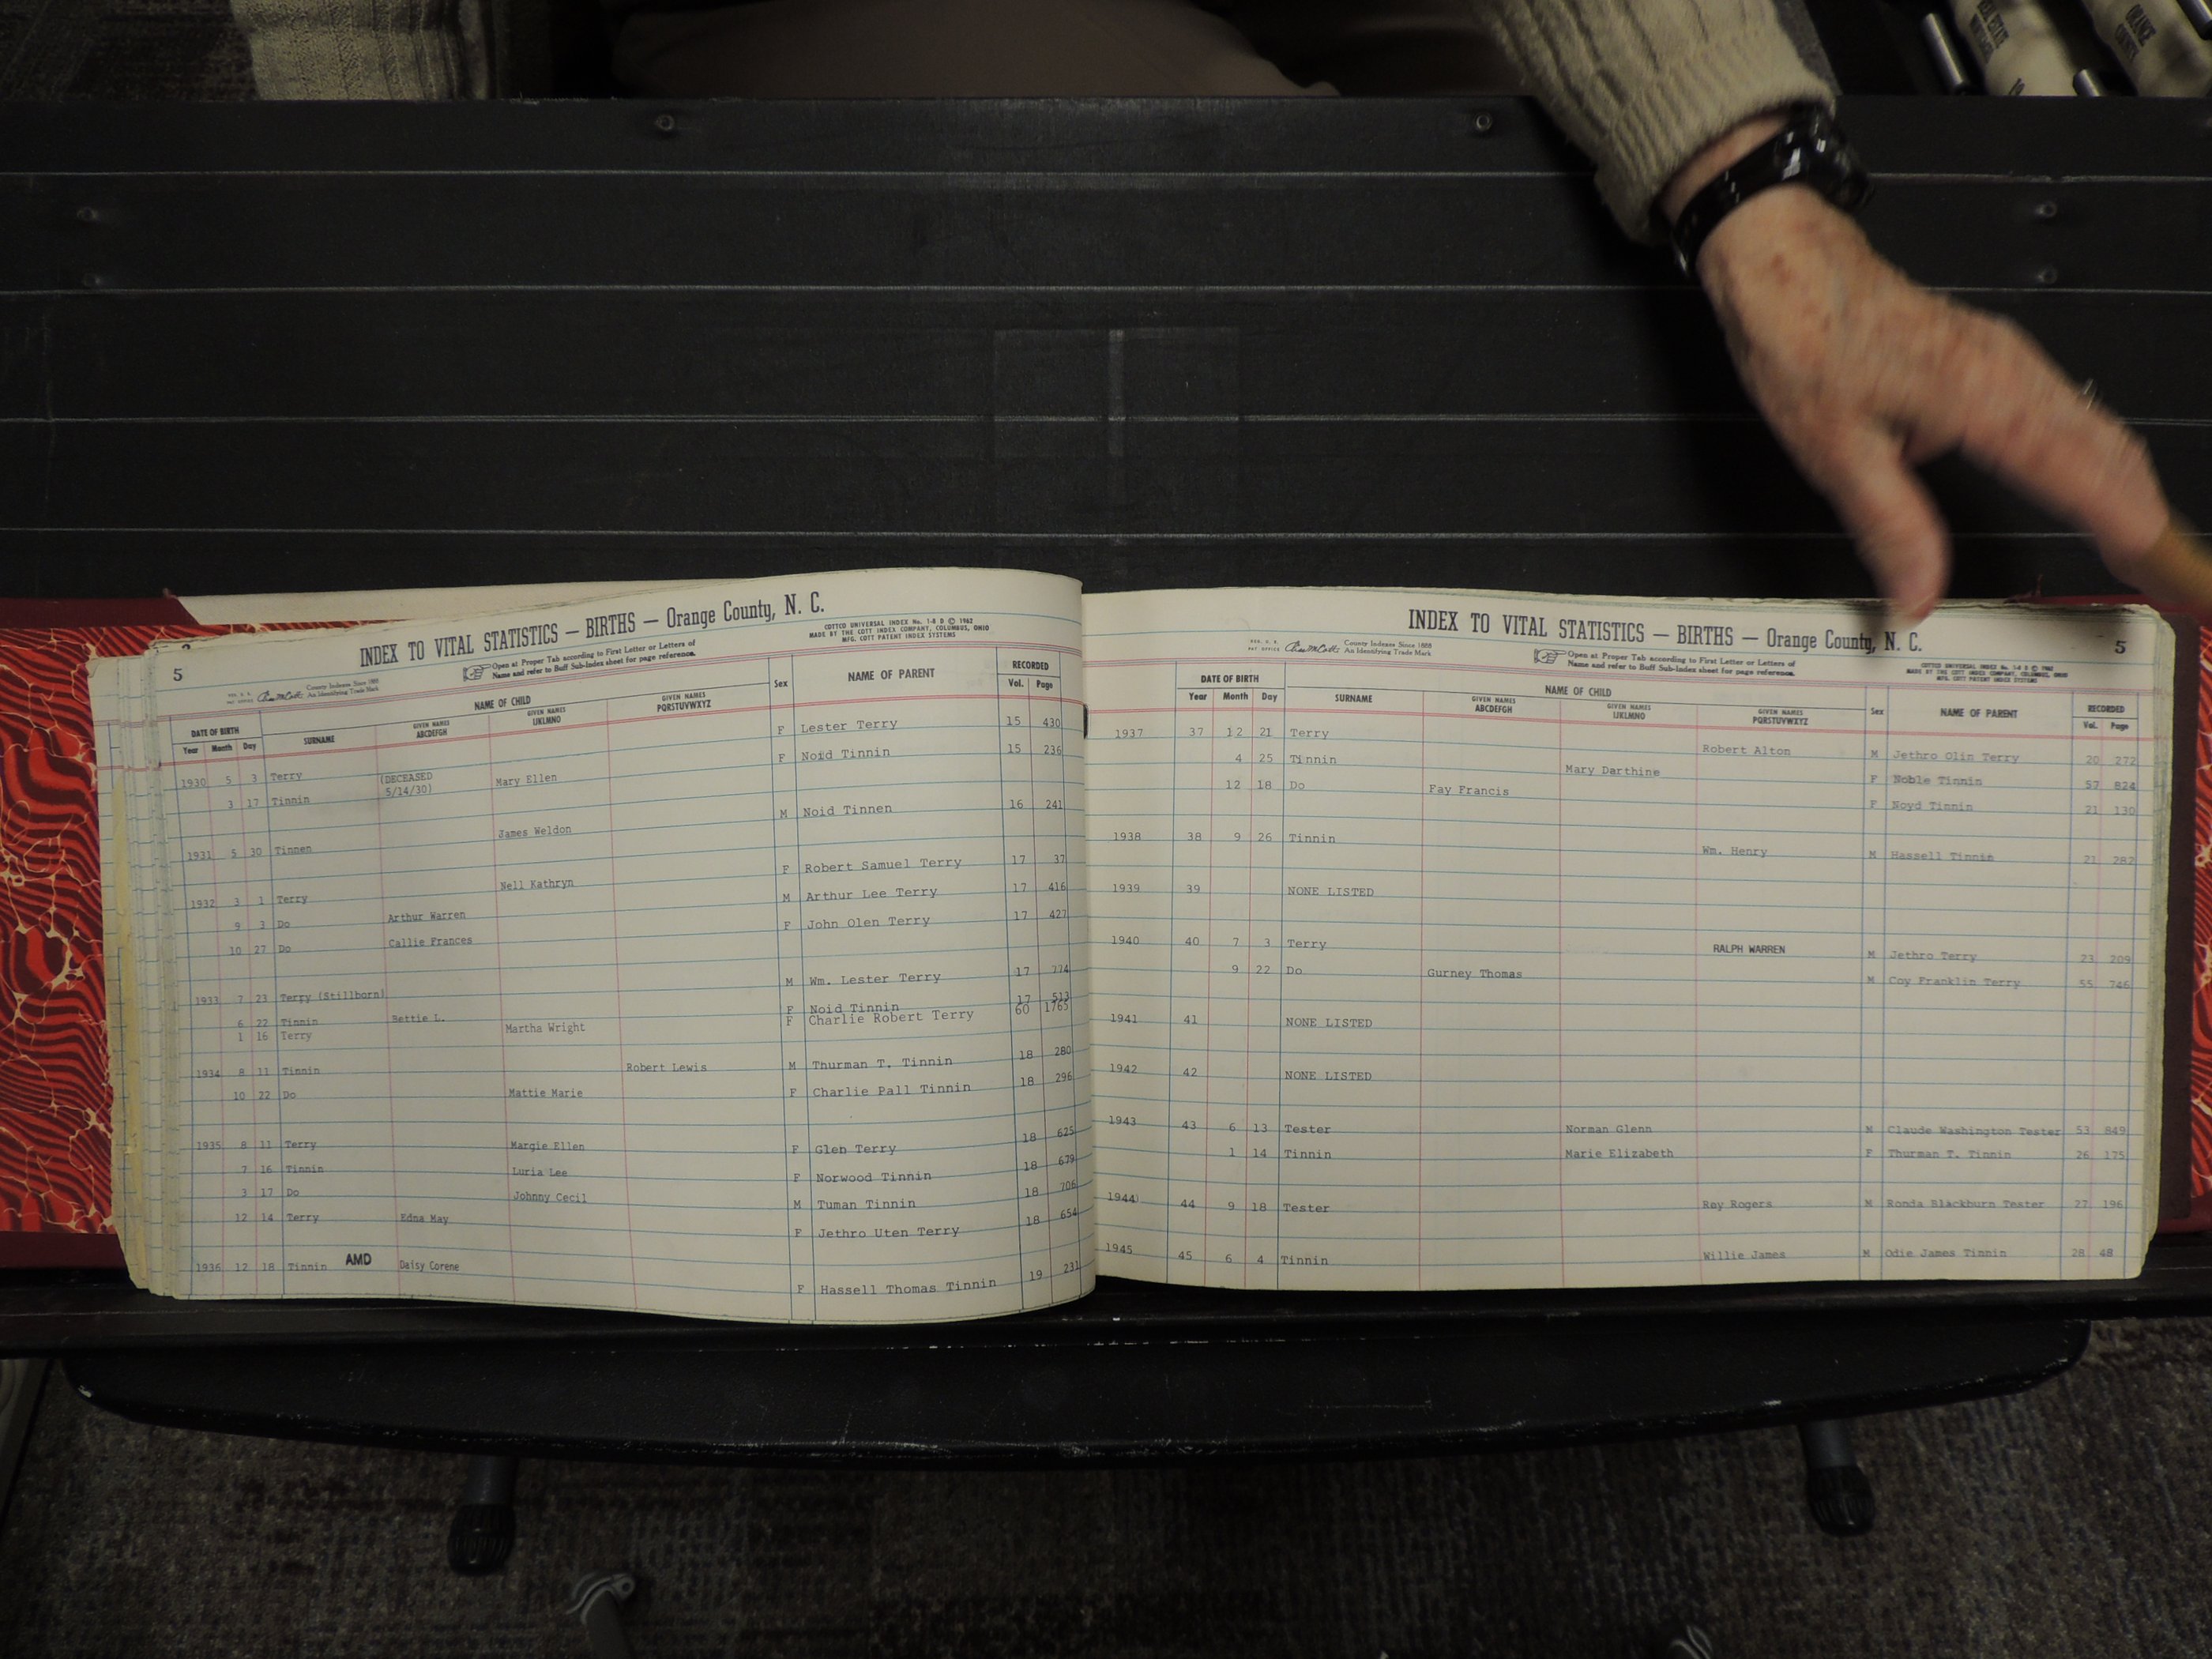 5
INDEX TO VITAL STATISTICS — BIRTHS — Orange County, N. C.
COTTCO UNIVERSAL INDEX No. 1-8 D © 1962
MADE BY THE COTT INDEX COMPANY, COLUMBUS, OHIO
MFG. COTT PATENT INDEX SYSTEMS
County Indexes Since 1888
An Identifying Trade Mark
Open at Proper Tab according to First Letter or Letters of
Name and refer to Buff Sub-Index sheet for page reference.
DATE OF BIRTH NAME OF CHILD Sex NAME OF PARENT RECORDED
Year Month Day SURNAME GIVEN NAMES ABCDEFGH GIVEN NAMES IJKLMNO GIVEN NAMES PQRSTUVWXYZ Vol. Page
1930 5 3 Terry (DECEASED 5/14/30) Mary Ellen F Lester Terry 15 430
3 17 Tinnin F Noid Tinnin 15 236
1931 5 30 Tinnen James Weldon M Noid Tinnen 16 241
1932 3 1 Terry Nell Kathryn F Robert Samuel Terry 17 37
9 3 Do Arthur Warren M Arthur Lee Terry 17 416
10 27 Do Callie Frances F John Olen Terry 17 427
1933 7 23 Terry (Stillborn) M Wm. Lester Terry 17 774
6 22 Tinnin Bettie L. F Noid Tinnin 17 513
1 16 Terry Martha Wright F Charlie Robert Terry 60 1765
1934 8 11 Tinnin Robert Lewis M Thurman T. Tinnin 18 280
10 22 Do Mattie Marie F Charlie Pall Tinnin 18 296
1935 8 11 Terry Margie Ellen F Glen Terry 18 625
7 16 Tinnin Luria Lee F Norwood Tinnin 18 679
3 17 Do Johnny Cecil M Tuman Tinnin 18 706
12 14 Terry Edna May F Jethro Uten Terry 18 654
1936 12 18 Tinnin AMD Daisy Corene F Hassell Thomas Tinnin 19 231
INDEX TO VITAL STATISTICS — BIRTHS — Orange County, N. C.
5
County Indexes Since 1888
An Identifying Trade Mark
Open at Proper Tab according to First Letter or Letters of
Name and refer to Buff Sub-Index sheet for page reference.
COTTCO UNIVERSAL INDEX No. 1-8 D © 1962
MADE BY THE COTT INDEX COMPANY, COLUMBUS, OHIO
MFG. COTT PATENT INDEX SYSTEMS
DATE OF BIRTH NAME OF CHILD Sex NAME OF PARENT RECORDED
Year Month Day SURNAME GIVEN NAMES ABCDEFGH GIVEN NAMES IJKLMNO GIVEN NAMES PQRSTUVWXYZ Vol. Page
1937 37 12 21 Terry Robert Alton M Jethro Olin Terry 20 272
4 25 Tinnin Mary Darthine F Noble Tinnin 57 824
12 18 Do Fay Francis F Noyd Tinnin 21 130
1938 38 9 26 Tinnin Wm. Henry M Hassell Tinnin 21 282
1939 39 NONE LISTED
1940 40 7 3 Terry RALPH WARREN M Jethro Terry 23 209
9 22 Do Gurney Thomas M Coy Franklin Terry 55 746
1941 41 NONE LISTED
1942 42 NONE LISTED
1943 43 6 13 Tester Norman Glenn M Claude Washington Tester 53 849
1 14 Tinnin Marie Elizabeth F Thurman T. Tinnin 26 175
1944 44 9 18 Tester Roy Rogers M Ronda Blackburn Tester 27 196
1945 45 6 4 Tinnin Willie James M Odie James Tinnin 28 48